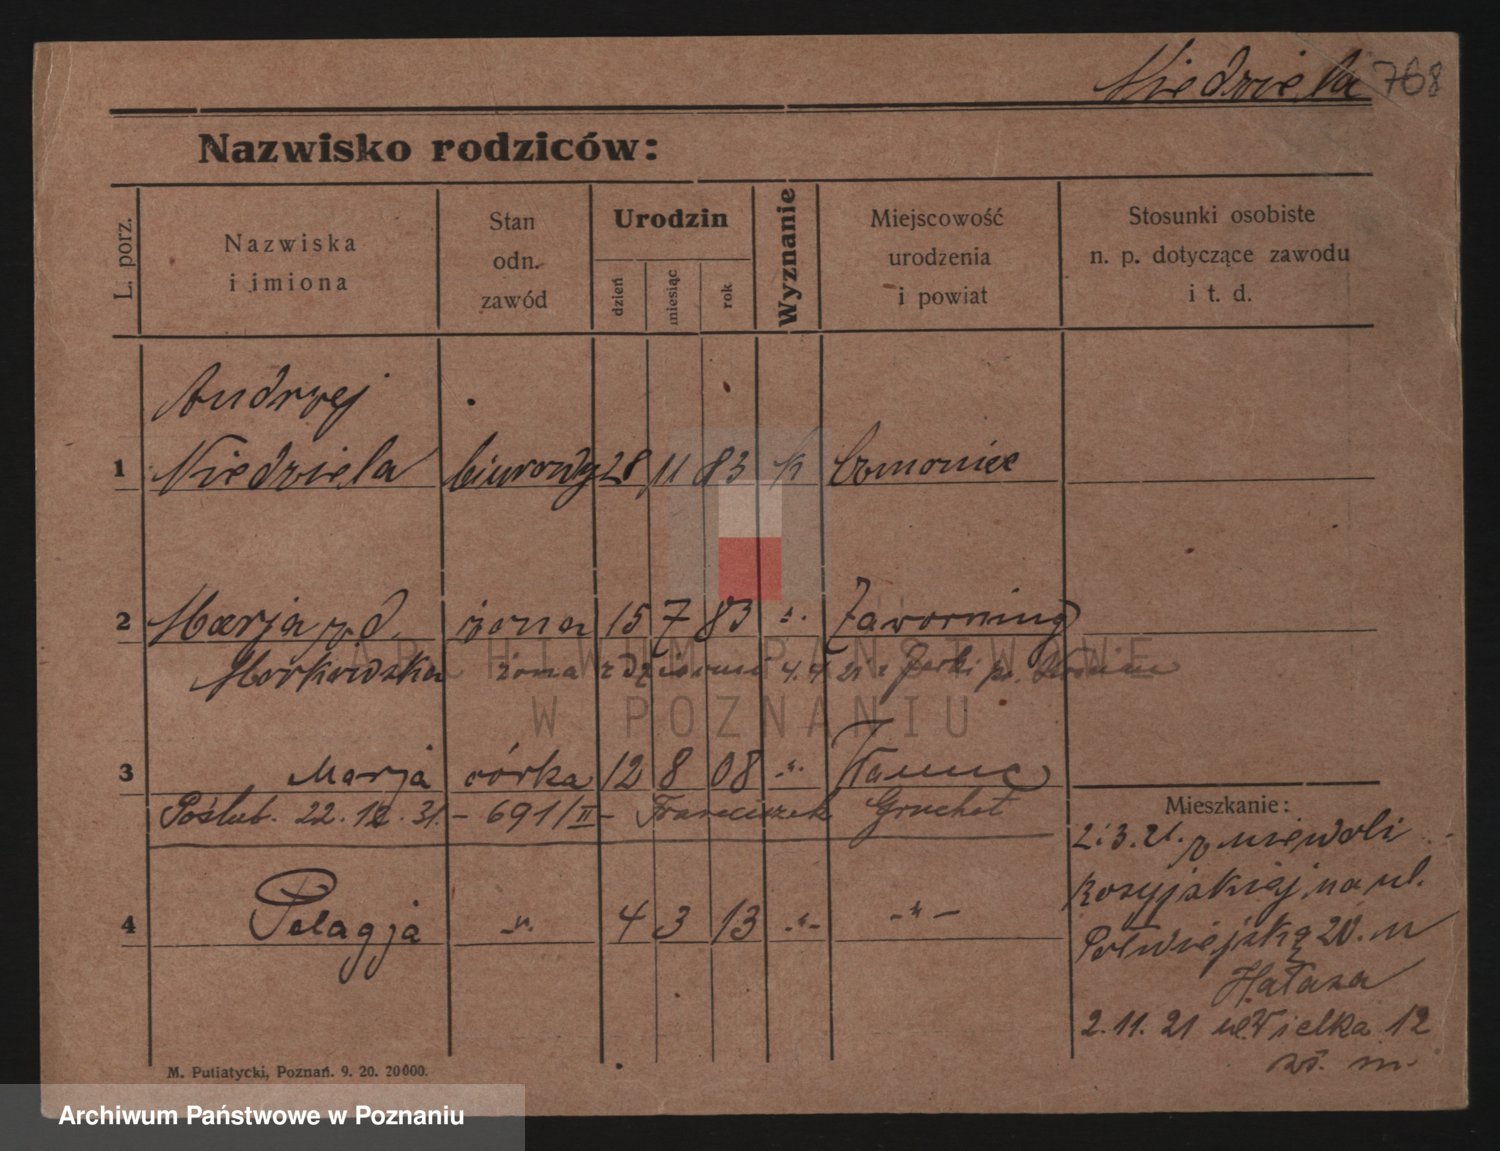 Niedziela 768
Nazwisko rodziców:
L. porz.
Nazwiska
i imiona
Stan
odn.
zawód
Urodzin
dzień
miesiąc
rok
Wyznanie
Miejscowość
urodzenia
i powiat
Stosunki osobiste
n. p. dotyczące zawodu
i t. d.
Andrzej
1 Niedziela biurowy 28 11 83 k Czmoniec
2 Marja z d. żona 15 7 83 -"-
żona 4.4 21 z
3 Marja córka 12 8 08 -"-
Poślub. 22.12.31. - 691/II - Franciszek Gruchot
4 Pelagja -"- 4 3 13 -"- -"-
Mieszkanie:
2.3.21. z niewoli
Rosyjskiej, na ul.
Półwiejską 20. u
Hałasa
2.11.21 ul. Wielka 12
M. Putiatycki, Poznań. 9. 20. 20000.
ARCHIWUM PAŃSTWOWE
W POZNANIU
Archiwum Państwowe w Poznaniu